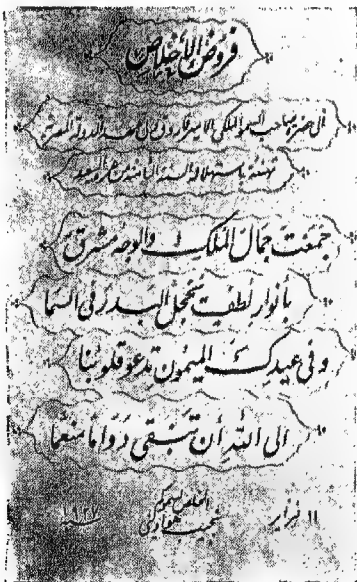 فروض الإخلاص
الى حضرة صاحب السمو الملكي الامير فاروق ولي عهد الدولة المصرية
تهنئة باستهلاله السنة الثامنة من عمره السعيد
جمعت جمال الملك والوجه مشرق
بأنوار لطف تخجل البدر في السما
وفي عيدك الميمون تدعو قلوبنا
الى الله أن تبقى دواماً منعما
١١ فبراير المخلص لسموكم سنة ١٩٢٧
نجيب هواويني